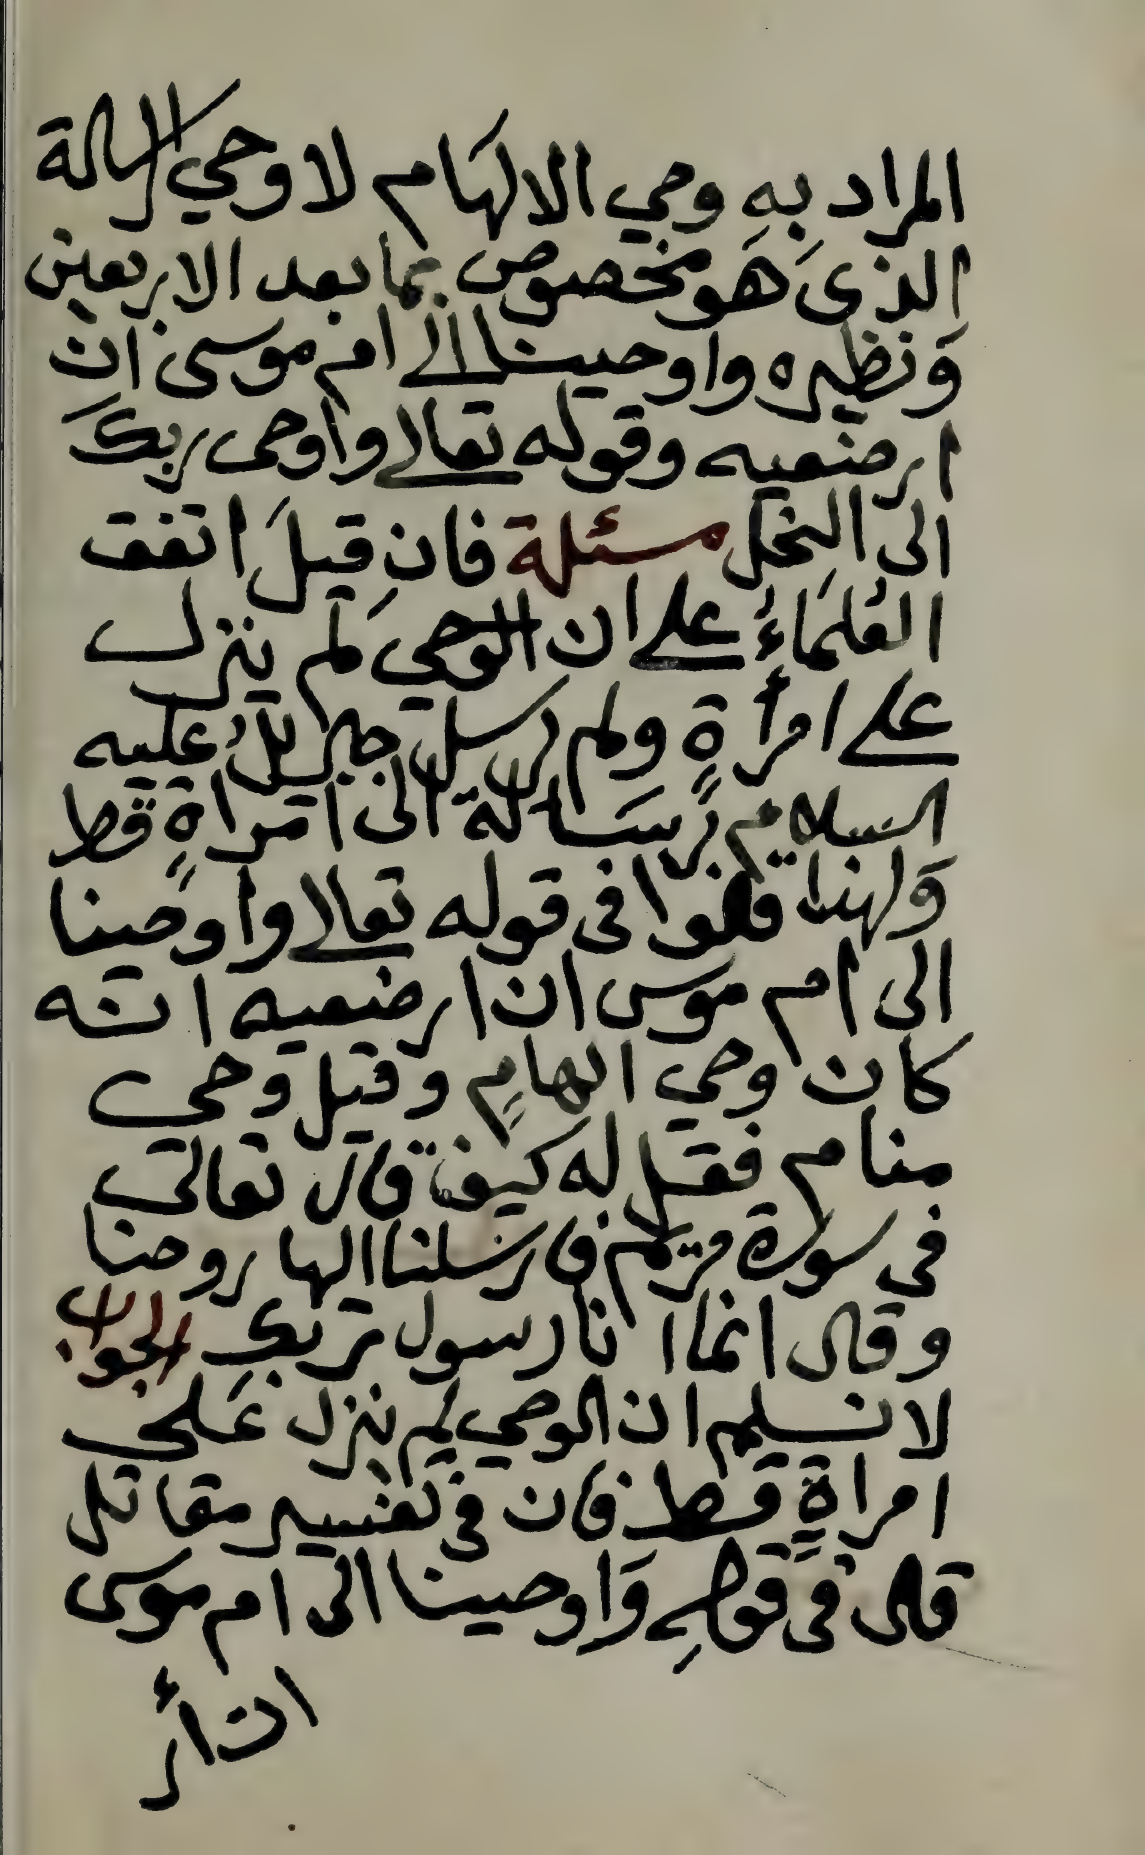 المراد بهِ وحي الالهَام لا وحي الرسالة
الذى هَو مخصوص بما بعد الاربعين
وَنظيره واوحينا الى ام موسى ان
ارضعيه وقوله تعالى واوحى ربك
الى النحل مسئلة فانِ قيلَ اتفق
العُلمَاءُ على ان الوحي لَم ينزل
على امرأةٍ ولم يرسل جبريلُ عليه
السلام برسَالة الى امراةٍ قط
وَلهذا قالوا فى قوله تعالى واوحينا
الى ام موسى ان ارضعيه انه
كان وحي الهامٍ وقيل وحى
منام فقل له كيف قال تعالى
فى سورة مريم فارسلنا اليها روحنا
وقال انما انا رسول ربك الجواب
لا نسلم ان الوحي لم ينزل عَلى
امراةٍ قط فان فى تفسير مقاتل
قال فى قولهِ وَاوحينا الى ام موسى
ان أر